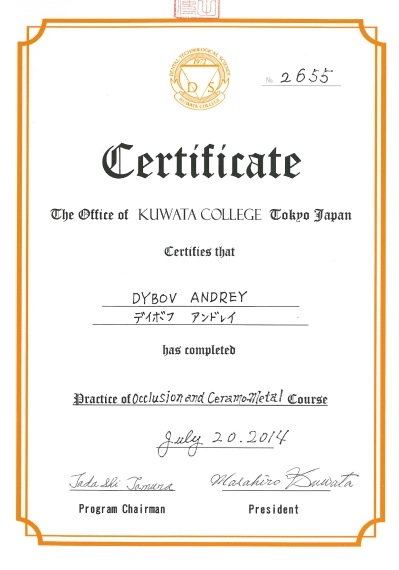 DENTAL TECHNOLOGICAL SCIENCE
D S
KUWATA COLLEGE
No. 2655
Certificate
The Office of KUWATA COLLEGE Tokyo Japan
Certifies that
DYBOV ANDREY
デイボフ アンドレイ
has completed
Practice of Occlusion and Ceramo-Metal Course
July 20. 2014
Tadashi Tomura Masahiro Kuwata
Program Chairman President